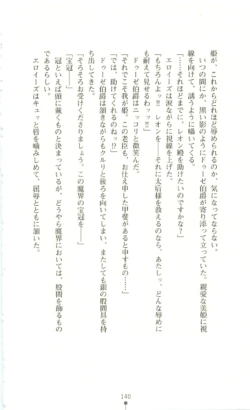 姫が、これからどれほど辱められるのか、気になってならない。
いつの間にか、黒い影のようにドゥーゼ伯爵が寄り添って立っていた。親愛な美姫に視
線を向けて、誘うように囁いてくる。
「……それほどまでに、レオン殿を助けたいのですかな？」
エロイーズは涙ながらに視線を上げた。
「もちろんよ、レオンを助けて！　それに太后様を救えるのなら、あたしっ。どんな辱めに
も耐えて見せるわっ!!」
ドゥーゼ伯爵はニッコリと微笑んだ。
「それでこそ我が姫。この老臣も、お仕え申した甲斐があると申すもの……」
「では、助けてくれるのねっ!?」
ドゥーゼ伯爵は頷きながらもクルリと後ろを向いてしまい、またしても銀の股間具を持
ち出してきた。
「そろそろお受けくださりましょう。この魔界の宝冠を……」
「宝冠……」
冠といえば頭に戴くものと決まっているが、どうやら魔界においては、股間を飾るもの
であるらしい。
エロイーズはキュッと唇を噛みしめて、屈辱とともに頷いた。
140